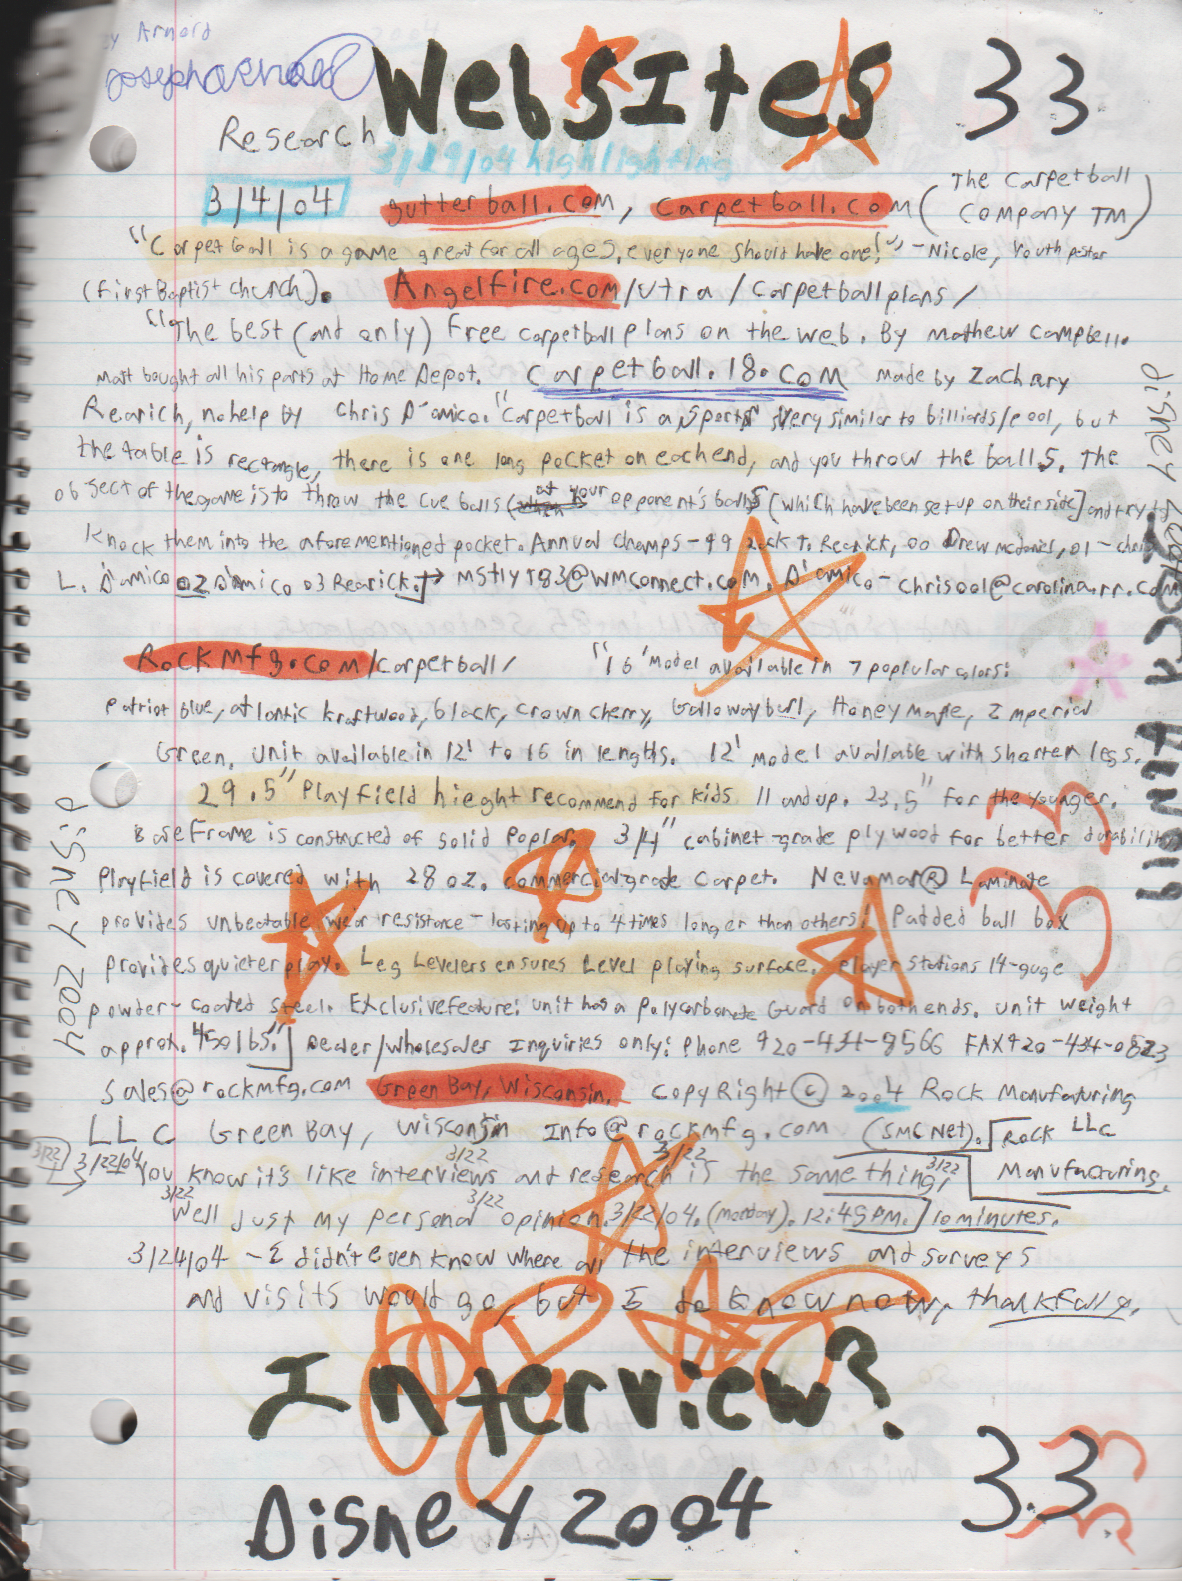 y Arnord
joseph arnold
WebsItes 33
Research
3/19/04 highlighting
3/4/04 gutterball.com, carpetball.com (The Carpetball Company TM)
"Carpetball is a game great for all ages, everyone should have one!" -Nicole, Youth pastor
(First Baptist church). Angelfire.com/ultra/carpetballplans/
"The best (and only) Free carpetball plans on the web. By Mathew Campbell.
Matt bought all his parts at Home Depot. Carpetball.18.com made by Zachary
Rearich, no help by Chris D'amico. "Carpetball is a sport very similar to billiards/pool, but
the table is rectangle, there is one long pocket on each end, and you throw the balls. The
object of the game is to throw the cue balls (at your opponent's balls [which have been set up on their side] and try to
knock them into the aforementioned pocket. Annual champs-99 Zack T. Rearick, 00 Drew mcdaniel, 01-chris
L. D'amico 02 D'amico 03 Rearick.] → mstlytr3@wmconnect.com. D'amico-chrisool@carolina.rr.com
Rockmfg.com/carpetball/ "16' Model available in 7 poplular colors:
patriot blue, atlantic kraftwood, black, crown cherry, Gallowayburl, Honey maple, Imperial
Green. Unit available in 12' to 16 in lengths. 12' model available with shorter legs.
29.5" Playfield hieght recommend for kids 11 and up. 23.5" for the younger.
Base Frame is constructed of solid Poplar. 3/4" cabinet-grade plywood for better durability
Playfield is covered with 28 oz. commercial-grade carpet. Nevamar® Laminate
provides unbeatable wear resistance - lasting up to 4 times longer than others! Padded ball box
provides quieter play. Leg Levelers ensures Level playing surface. player stations 14-guge
powder-coated steel. Exclusive feature: unit has a polycarbonate Guard on both ends. unit weight
approx. 450 lbs."] Dealer/Wholesaler Inquiries only: Phone 920-434-9566 FAX 920-434-0823
sales@rockmfg.com Green Bay, Wisconsin. Copy Right © 2004 Rock Manufaturing
LLC Green Bay, Wisconsin Info@rockmfg.com (SMC Net). Rock LLC
Manufacturing.
3/22 3/22/04 You know it's like interviews and research is the same thing,
3/22 3/22 3/22
3/22 3/22
Well just my personal opinion. 3/22/04. (monday). 12:45 PM. 10 minutes.
3/24/04 - I didn't even know where all the interviews and surveys
and visits would go, but I do know now, thankfully.
Interview?
Disney 2004 33
Disney 2004
Disney 2004
33